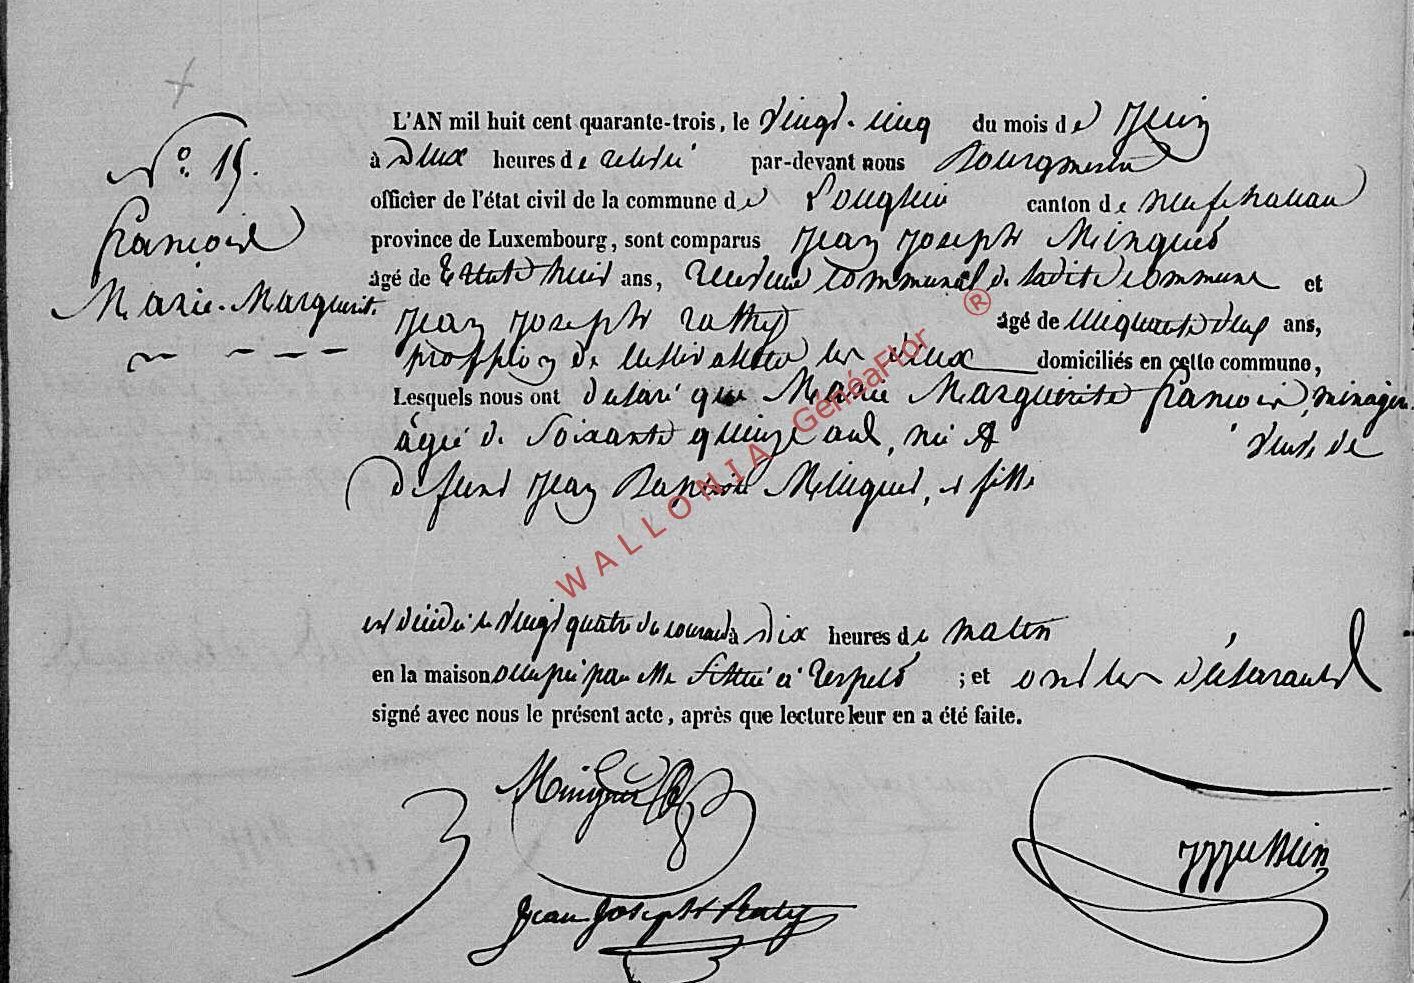 N°. 19.
françois
Marie-Marguerite
L'AN mil huit cent quarante-trois, le vingt-cinq du mois de Juin
à deux heures de relevée par-devant nous Bourgmestre
officier de l'état civil de la commune de Longlier canton de neufchateau
province de Luxembourg, sont comparus Jean Joseph Minguet
âgé de trente huit ans, receveur communal de ladite commune et
Jean Joseph rathy âgé de cinquante deux ans,
profession de cultivateur les deux domiciliés en cette commune,
Lesquels nous ont declaré que Marie Marguerite françois, ménagère
âgée de Soixante quinze ans, née à veuve de
defunt Jean Baptiste Minguet, et fille
est décédée le vingt quatre du courant à dix heures de matin
en la maison occupée par elle située à respelt ; et ont les déclarants
signé avec nous le présent acte, après que lecture leur en a été faite.
Minguet
Jean Joseph Raty